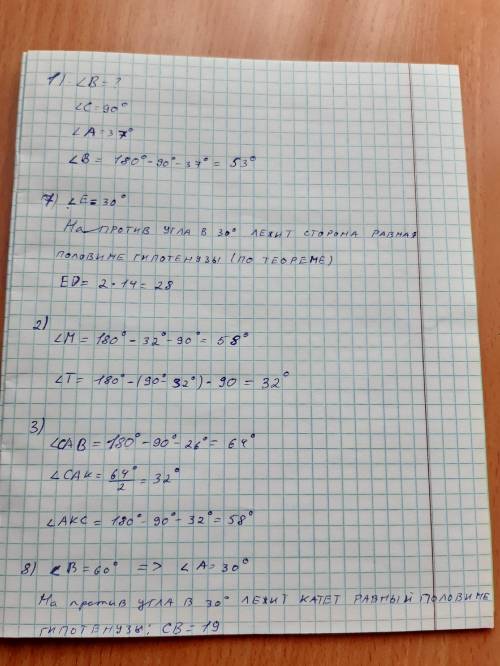 1) ∠B = ?
∠C = 90°
∠A = 37°
∠B = 180° - 90° - 37° = 53°
7) ∠E = 30°
На против угла в 30° лежит сторона равная
половине гипотенузы (по теореме)
ED = 2 · 14 = 28
2)
∠M = 180° - 32° - 90° = 58°
∠T = 180° - (90° - 32°) - 90 = 32°
3)
∠CAB = 180° - 90° - 26° = 64°
∠CAK = 64°/2 = 32°
∠AKC = 180° - 90° - 32° = 58°
8) ∠B = 60° => ∠A = 30°
На против угла в 30° лежит катет равный половине
гипотенузы; CB = 19